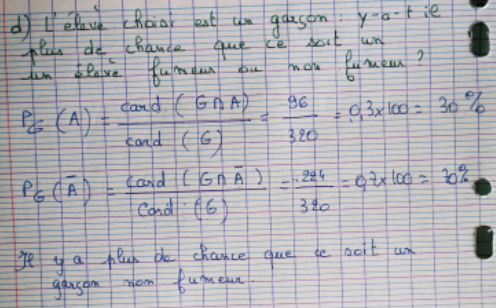 d) L'élève choisi est un garçon : y-a-t-il
plus de chance que ce soit un
un élève fumeur ou non fumeur ?
P_G (A) = card (G∩A) / card (G) = 96 / 320 = 0,3x100 = 30 %
P_G (Ā) = Card (G∩Ā) / Card (G) = 224 / 320 = 0,7x100 = 70%
Il y a plus de chance que ce soit un
garçon non fumeur.